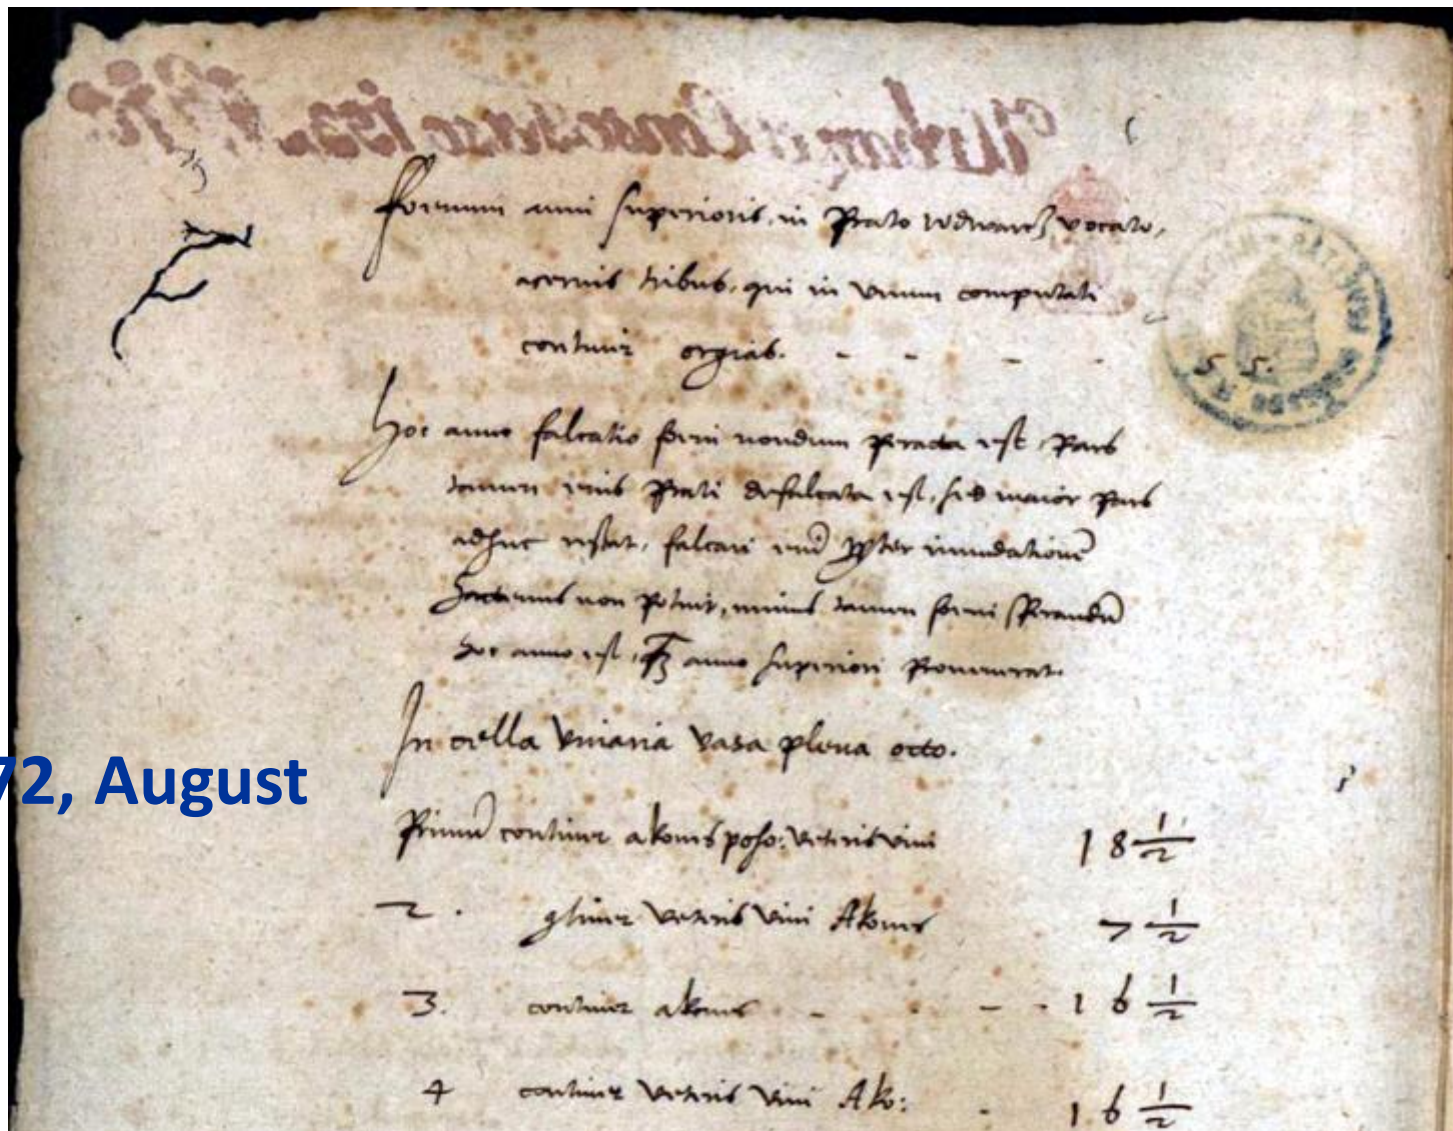 Foenum anni superioris, in Prato Udwarcz vocato,
acervis tribus, qui in unum computati
continent orgias. - - - - 55.
Hoc anno falcatio foeni nondum peracta est, Pars
tamen eius Prati defalcata est, sed maior pars
adhuc restat, falcari enim propter inundationem
hactenus non potuit, minus tamen foeni sperandum
hoc anno est, quam anno superiori
In cella vinaria vasa plena octo.
72, August
Primum continet akones poso: veteris vini 18 1/2
2. continet veteris vini Akones 7 1/2
3. continet akones - - - 16 1/2
4 continet veteris vini Ako: - 16 1/2